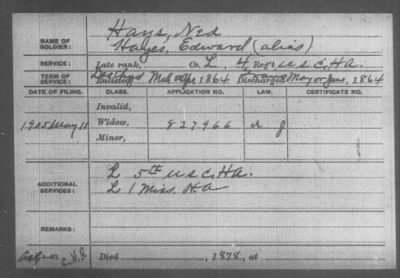 NAME OF SOLDIER: Hays, Ned
Hayes, Edward (alias)
SERVICE: Late rank, Co. L, 4 Reg't U S C, H A.
TERM OF SERVICE: Enlisted 1864 Discharged May or June, 1864
DATE OF FILING. CLASS. APPLICATION NO. LAW. CERTIFICATE NO.
Invalid,
1905 May 11 Widow, 827966
Minor,
ADDITIONAL SERVICES: L 5th U S C, H A.
L 1 Miss. H A
REMARKS:
Died 1878, at